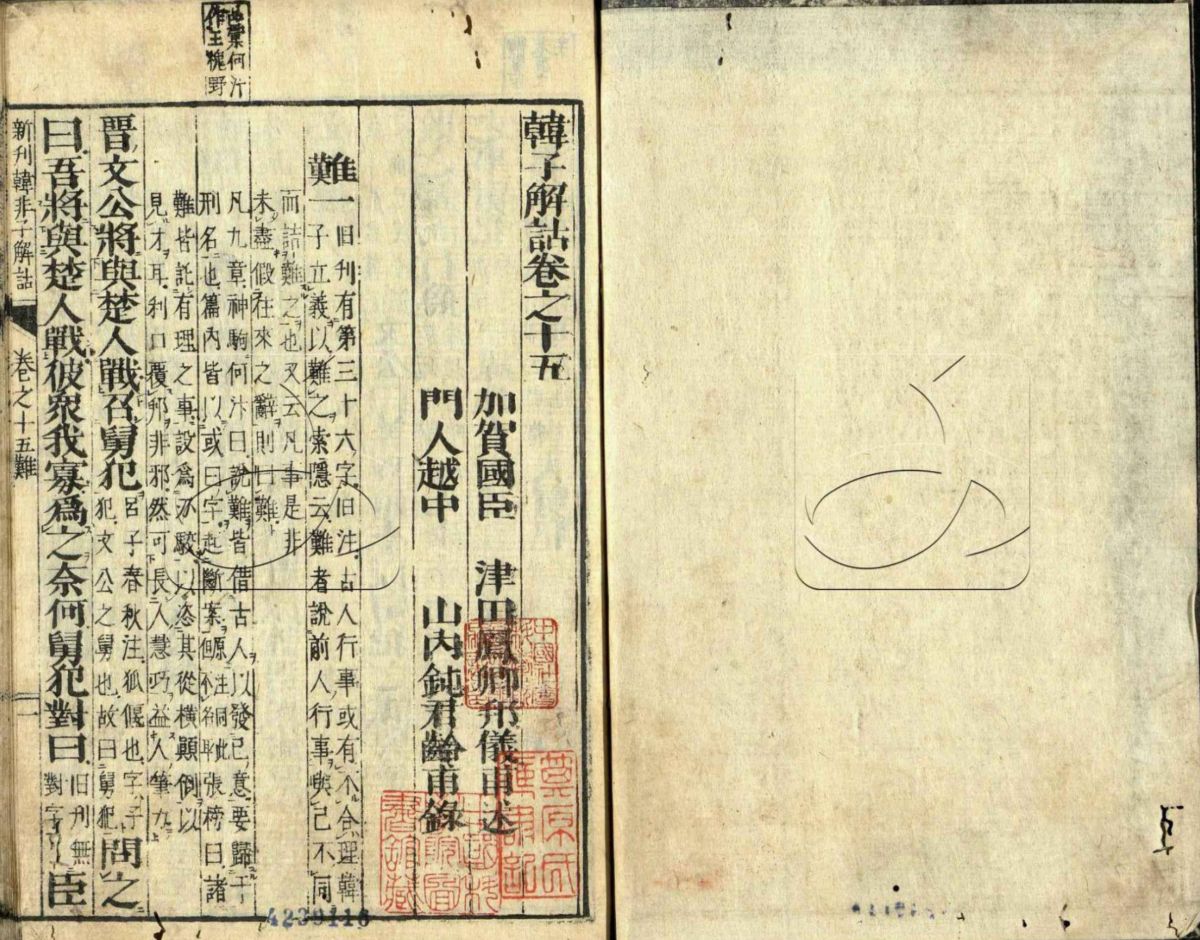 韓子解詁卷之十五
加賀國臣 津田鳳卿邦儀甫述
門人越中 山内鈍君齡甫錄
難一
旧刊有第三十六字旧注古人行事或有不合理韓
子立義以難之索隱云難者說前人行事與己不同
而詰難之也又云凡事是非
未盡假往來之辭則曰難
凡九章神駒何汴曰說難皆借古人以發己意要歸于
刑名也篇内皆以或曰字起斷案 張榜曰諸
難皆託有理之事設爲 駁以恣其從橫顚倒以
見才耳利口覆邦非邪然可長人慧巧益人筆
晉文公將與楚人戰召舅犯
呂子春秋注狐偃也字子
犯文公之舅也故曰舅犯
問之
曰吾將與楚人戰彼衆我寡爲之奈何舅犯對曰
旧刊無
對字
臣
新刊韓非子解詁
卷之十五難
一
何汴
作王槐野
4239116